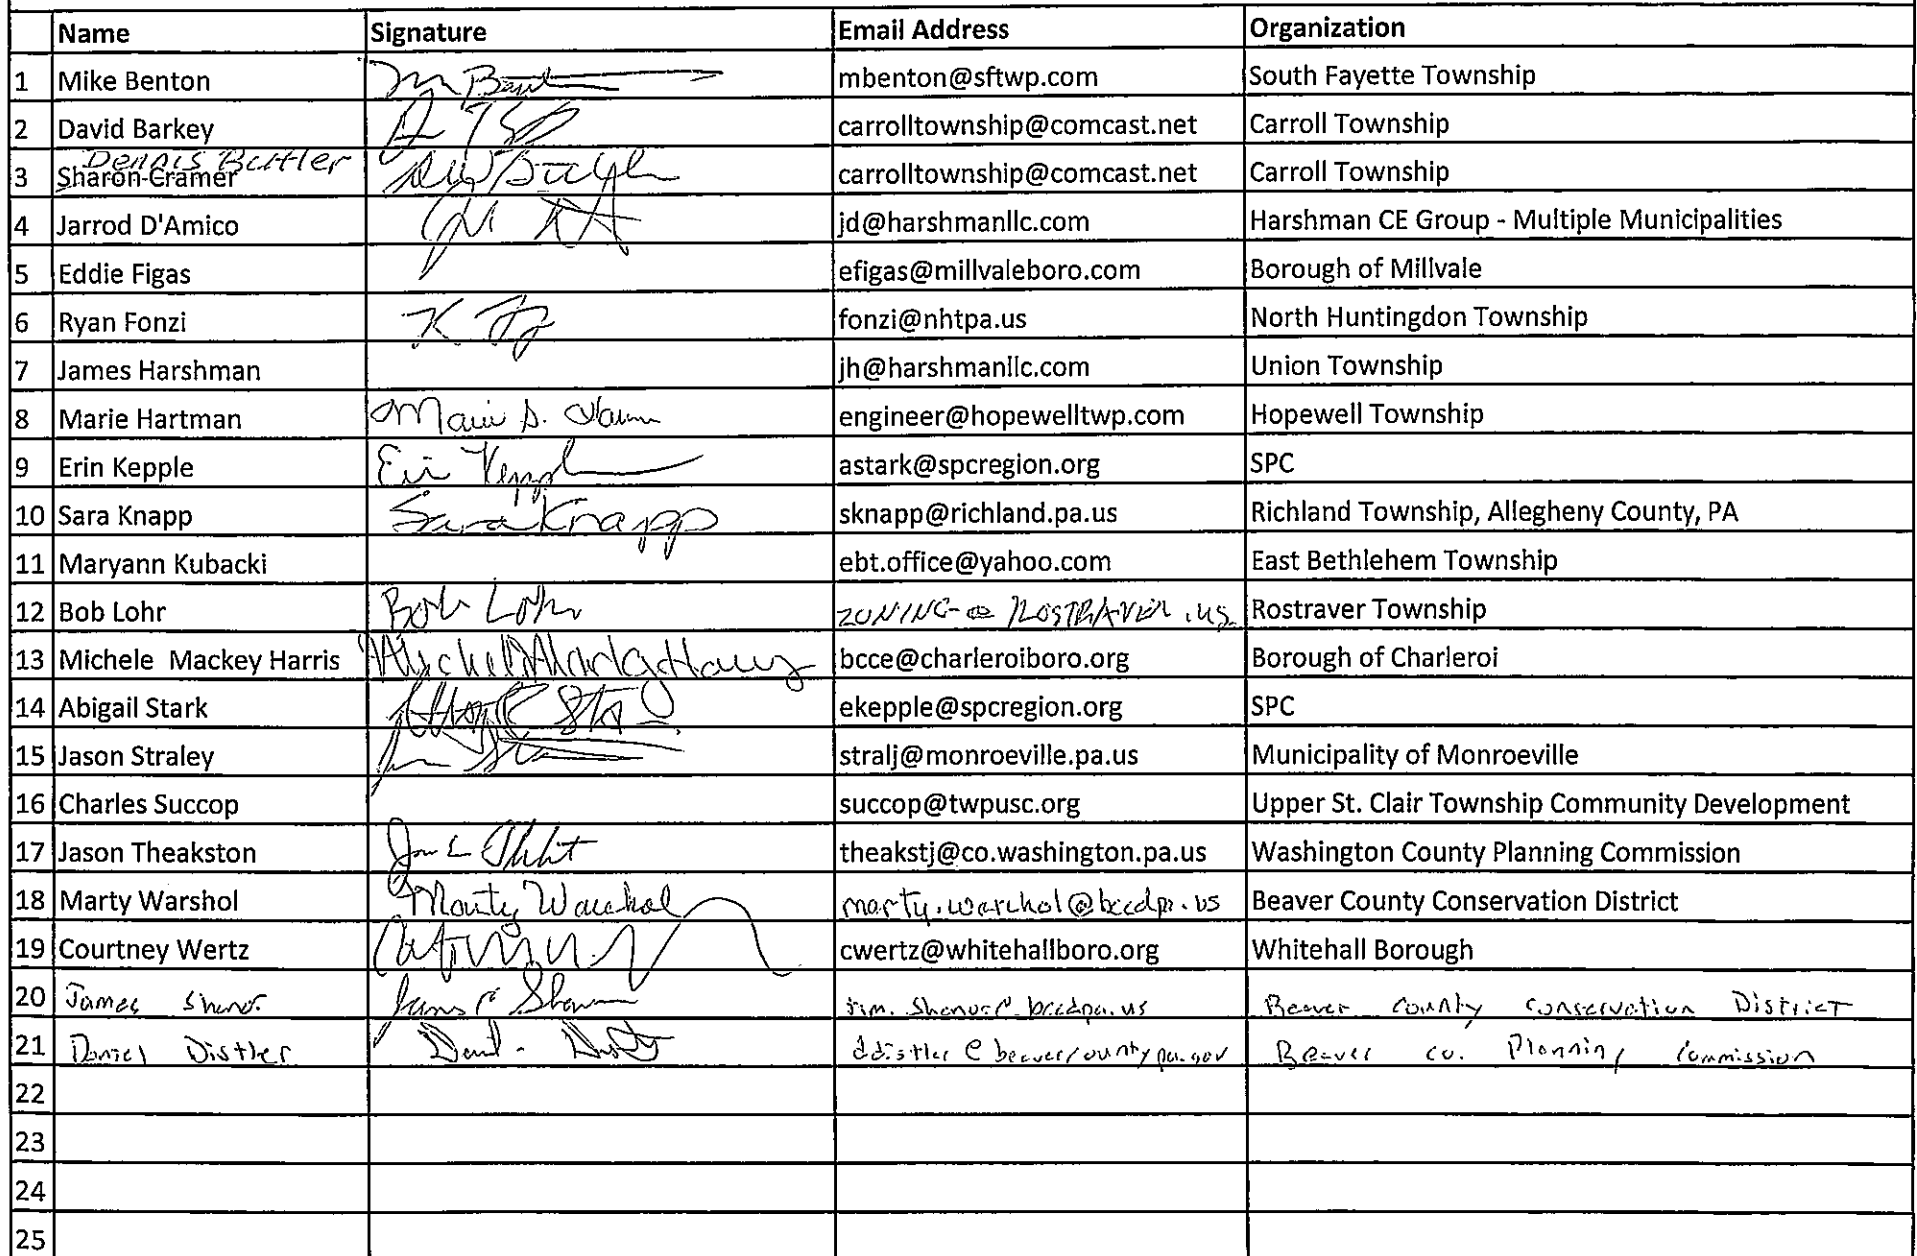 Name Signature Email Address Organization
1 Mike Benton mbenton@sftwp.com South Fayette Township
2 David Barkey carrolltownship@comcast.net Carroll Township
Dennis Butler
3 Sharon Cramer carrolltownship@comcast.net Carroll Township
4 Jarrod D'Amico jd@harshmanllc.com Harshman CE Group - Multiple Municipalities
5 Eddie Figas efigas@millvaleboro.com Borough of Millvale
6 Ryan Fonzi fonzi@nhtpa.us North Huntingdon Township
7 James Harshman jh@harshmanllc.com Union Township
8 Marie Hartman Marie S. engineer@hopewelltwp.com Hopewell Township
9 Erin Kepple Erin Kepple astark@spcregion.org SPC
10 Sara Knapp Sara Knapp sknapp@richland.pa.us Richland Township, Allegheny County, PA
11 Maryann Kubacki ebt.office@yahoo.com East Bethlehem Township
12 Bob Lohr Bob Lohr ZONING@ROSTRAVER.US Rostraver Township
13 Michele Mackey Harris bcce@charleroiboro.org Borough of Charleroi
14 Abigail Stark ekepple@spcregion.org SPC
15 Jason Straley stralj@monroeville.pa.us Municipality of Monroeville
16 Charles Succop succop@twpusc.org Upper St. Clair Township Community Development
17 Jason Theakston theakstj@co.washington.pa.us Washington County Planning Commission
18 Marty Warshol Marty Warshol marty.warshol@bccdpa.us Beaver County Conservation District
19 Courtney Wertz cwertz@whitehallboro.org Whitehall Borough
20 James Shanor jim.shanor@bccdpa.us Beaver County Conservation District
21 Daniel Distler ddistler@beavercountypa.gov Beaver Co. Planning Commission
22
23
24
25